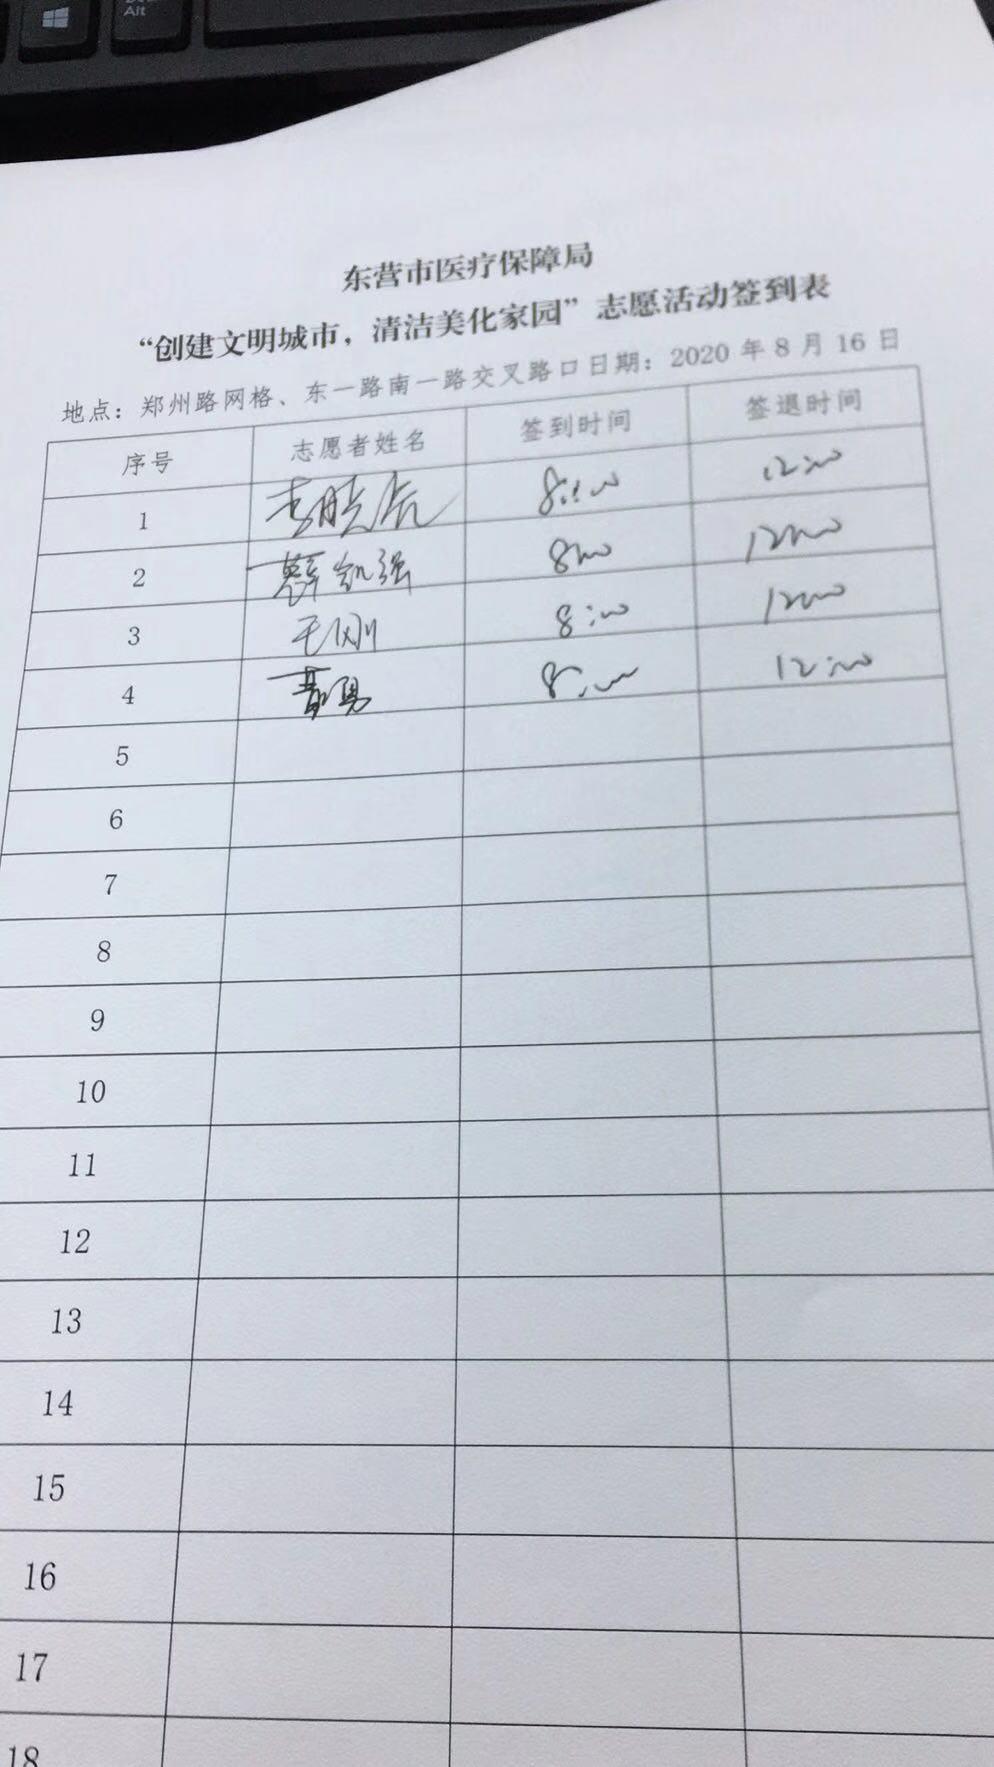 Alt
东营市医疗保障局
“创建文明城市，清洁美化家园”志愿活动签到表
地点：郑州路网格、东一路南一路交叉路口日期：2020 年 8 月 16 日
序号 志愿者姓名 签到时间 签退时间
1 8:00 12:00
2 8:00 12:00
3 王刚 8:00 12:00
4 8:00 12:00
5
6
7
8
9
10
11
12
13
14
15
16
17
18